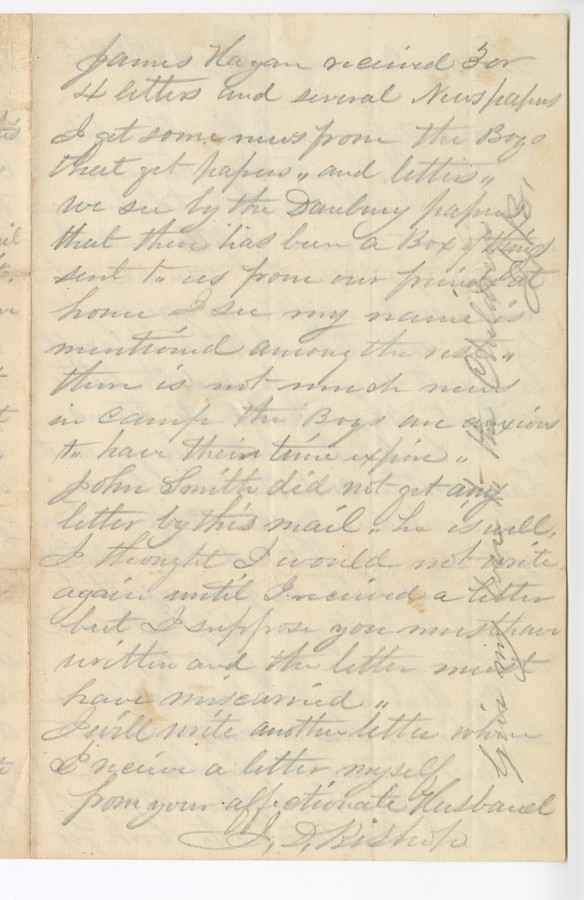 James Hagan received 3 or
4 letters and several Newspapers
I get some news from the Boys
that get papers,, and letters,,
we see by the Danbury papers
that there has been a Box of things
sent to us from our friends at
home I see my name is
mentioned among the rest ,,
there is not much news
in camp the Boys are anxious
to have their time expire ,,
John Smith did not get any
letter by this mail ,, he is well,
I thought I would not write
again until I received a letter
but I suppose you must have
written and the letter must
have miscarried ,,
I will write another letter when
I receive a letter myself
from your affectionate Husband
J, D, Bishop
Give my love to the Children